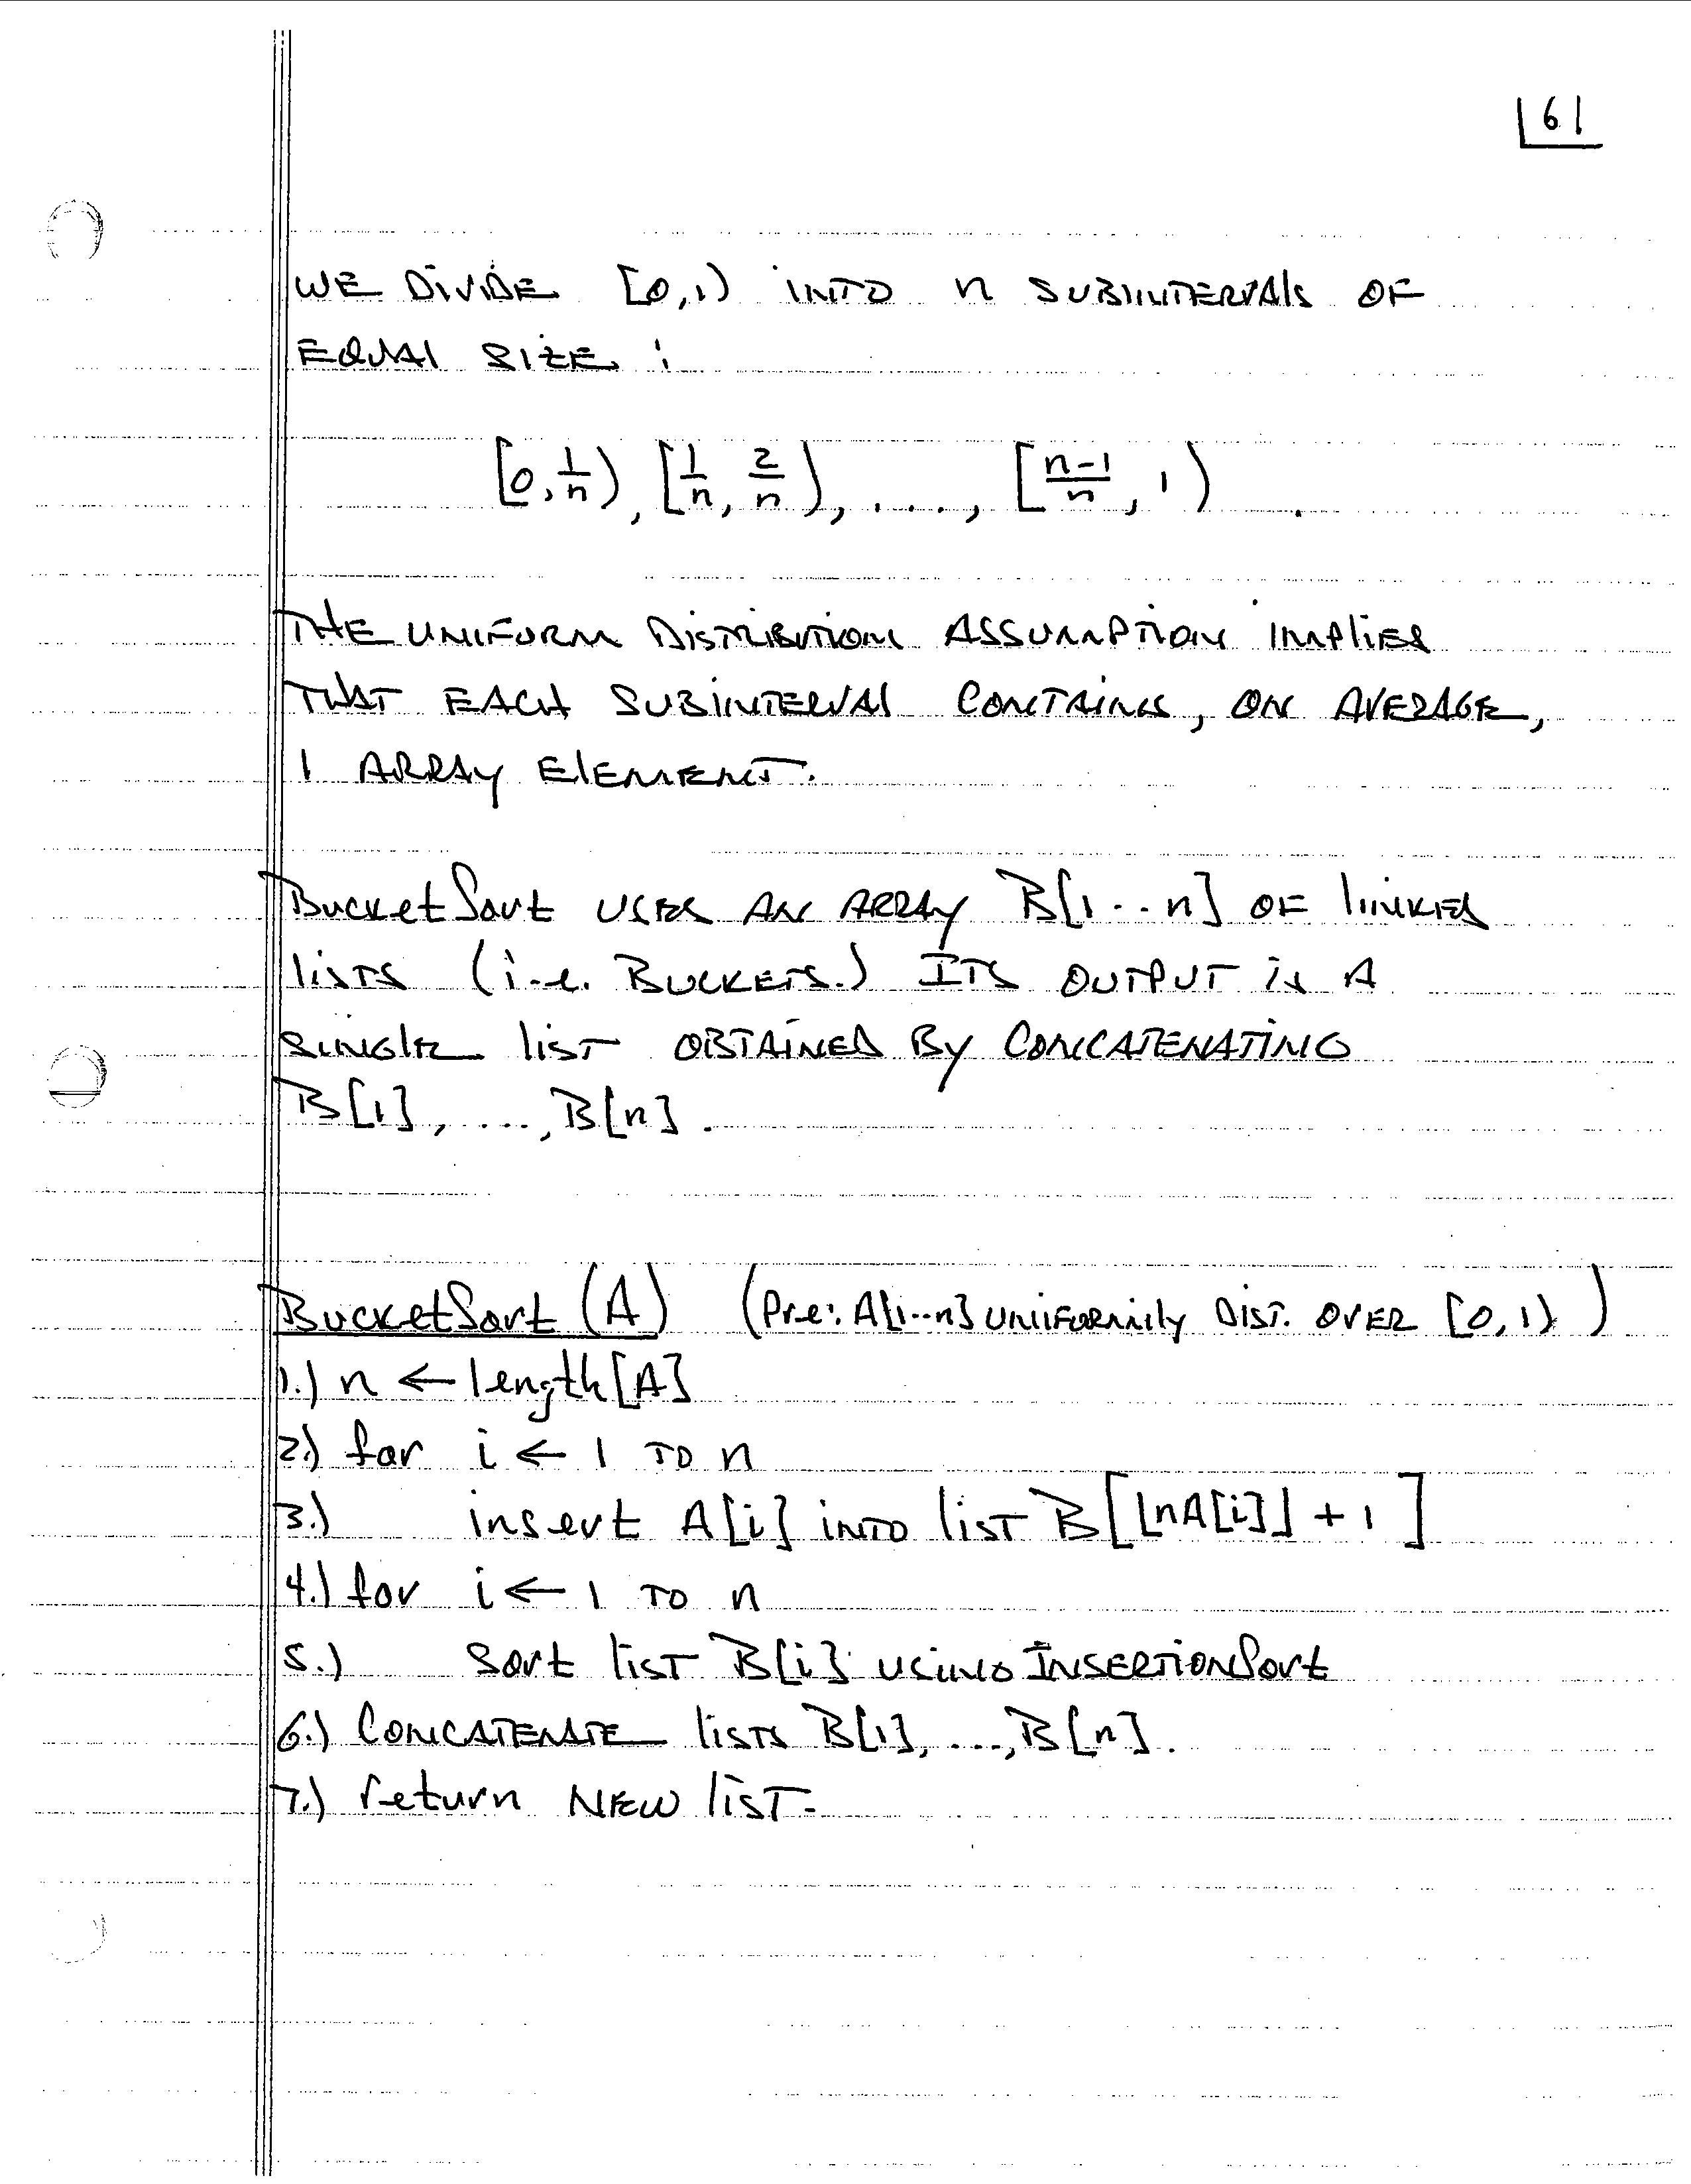 61
WE DIVIDE [0,1) INTO n SUBINTERVALS OF
EQUAL SIZE :
[0, 1/n), [1/n, 2/n), ...., [n-1/n, 1) .
THE UNIFORM DISTRIBUTION ASSUMPTION IMPLIES
THAT EACH SUBINTERVAL CONTAINS, ON AVERAGE,
1 ARRAY ELEMENT.
BucketSort USES AN ARRAY B[1··n] OF LINKED
LISTS (i.e. BUCKETS.) ITS OUTPUT IS A
SINGLE LIST OBTAINED BY CONCATENATING
B[1], ...., B[n].
BucketSort (A) (Pre: A[1··n] UNIFORMILY DIST. OVER [0,1) )
1.) n ← length[A]
2.) for i ← 1 TO n
3.) insert A[i] INTO LIST B[⌊nA[i]⌋ + 1]
4.) for i ← 1 TO n
5.) Sort LIST B[i] USING INSERTIONSort
6.) CONCATENATE LISTS B[1], ..., B[n].
7.) return NEW LIST.